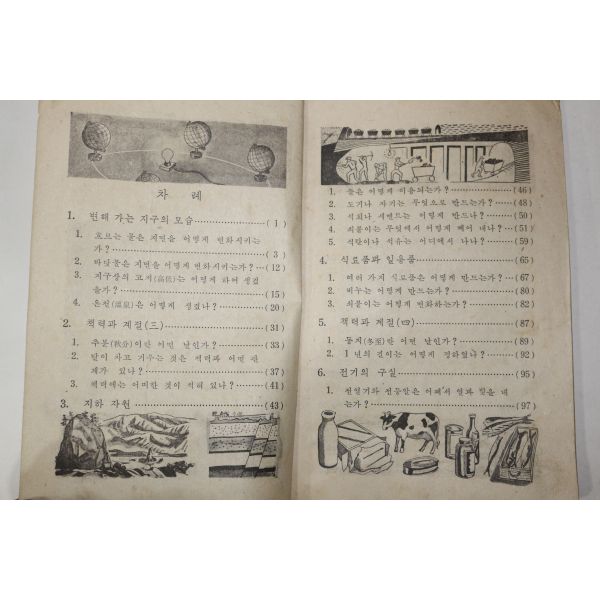 차 례
1. 변해 가는 지구의 모습 (1)
1. 흐르는 물은 지면을 어떻게 변화시키는
가? (3)
2. 바닷물은 지면을 어떻게 변화시키는가? (12)
3. 지구상의 고저(高低)는 어떻게 하여 생겼
을까? (15)
4. 온천(溫泉)은 어떻게 생겼나? (20)
2. 책력과 계절(三) (31)
1. 추분(秋分)이란 어떤 날인가? (33)
2. 달이 차고 기우는 것은 책력과 어떤 관
계가 있나? (37)
3. 책력에는 어떠한 것이 적혀 있나? (41)
3. 지하 자원 (43)
1. 돌은 어떻게 이용되는가? (46)
2. 도기나 자기는 무엇으로 만드는가? (48)
3. 석회나 시멘트는 어떻게 만드나? (50)
4. 쇠붙이는 무엇에서 어떻게 빼어 내나? (51)
5. 석탄이나 석유는 어디에서 나나? (59)
4. 식료품과 일용품 (65)
1. 여러 가지 식료품은 어떻게 만드는가? (67)
2. 비누는 어떻게 만드는가? (80)
3. 쇠붙이는 어떻게 변화하는가? (82)
5. 책력과 계절(四) (87)
1. 동지(冬至)란 어떤 날인가? (89)
2. 1년의 길이는 어떻게 정하였나? (92)
6. 전기의 구실 (95)
1. 전열기와 전등알은 어째서 열과 빛을 내
는가? (97)